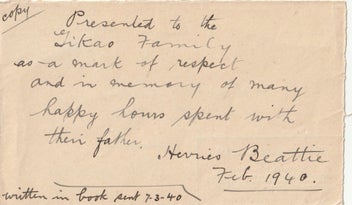 copy
Presented to the
Tikao Family
as a mark of respect
and in memory of many
happy hours spent with
their father.
Herries Beattie
Feb. 1940.
written in book sent 7-3-40